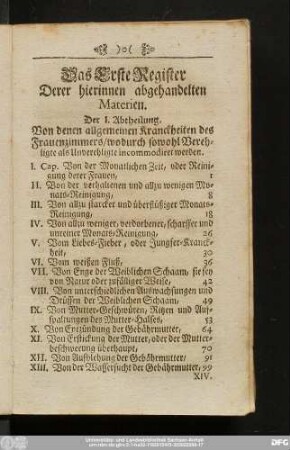 )o(
Das Erste Register
Derer hierinnen abgehandelten
Materien.
Der I. Abtheilung.
Von denen allgemeinen Kranckheiten des
Frauenzimmers/wodurch sowohl Vereh-
ligte als Unverehligte incommodiert werden.
I. Cap. Von der Monatlichen Zeit, oder Reini-
gung derer Frauen, 1
II. Von der verhaltenen und allzu wenigen Mo-
nats-Reinigung, 8
III. Von allzu starcker und überflüßiger Monats-
Reinigung, 18
IV. Von allzu weniger, verdorbener, scharffer und
unreiner Monats-Reinigung, 26
V. Vom Liebes-Fieber, oder Jungfer-Kranck-
heit, 30
VI. Vom weißen Fluß, 36
VII. Von Enge der Weiblichen Schaam, sie sey
von Natur oder zufälliger Weise, 42
VIII. Von unterschiedlichen Auswachsungen und
Drüssen der Weiblichen Schaam, 49
IX. Von Mutter-Geschwüren, Ritzen und Auf-
spaltungen des Mutter-Halses, 53
X. Von Entzündung der Gebährmutter, 64
XI. Von Erstickung der Mutter, oder der Mutter-
beschwerung überhaupt, 70
XII. Von Aufblehung der Gebährmutter, 91
XIII. Von der Wassersucht der Gebährmutter, 99
XIV.
Universitäts- und Landesbibliothek Sachsen-Anhalt
DFG